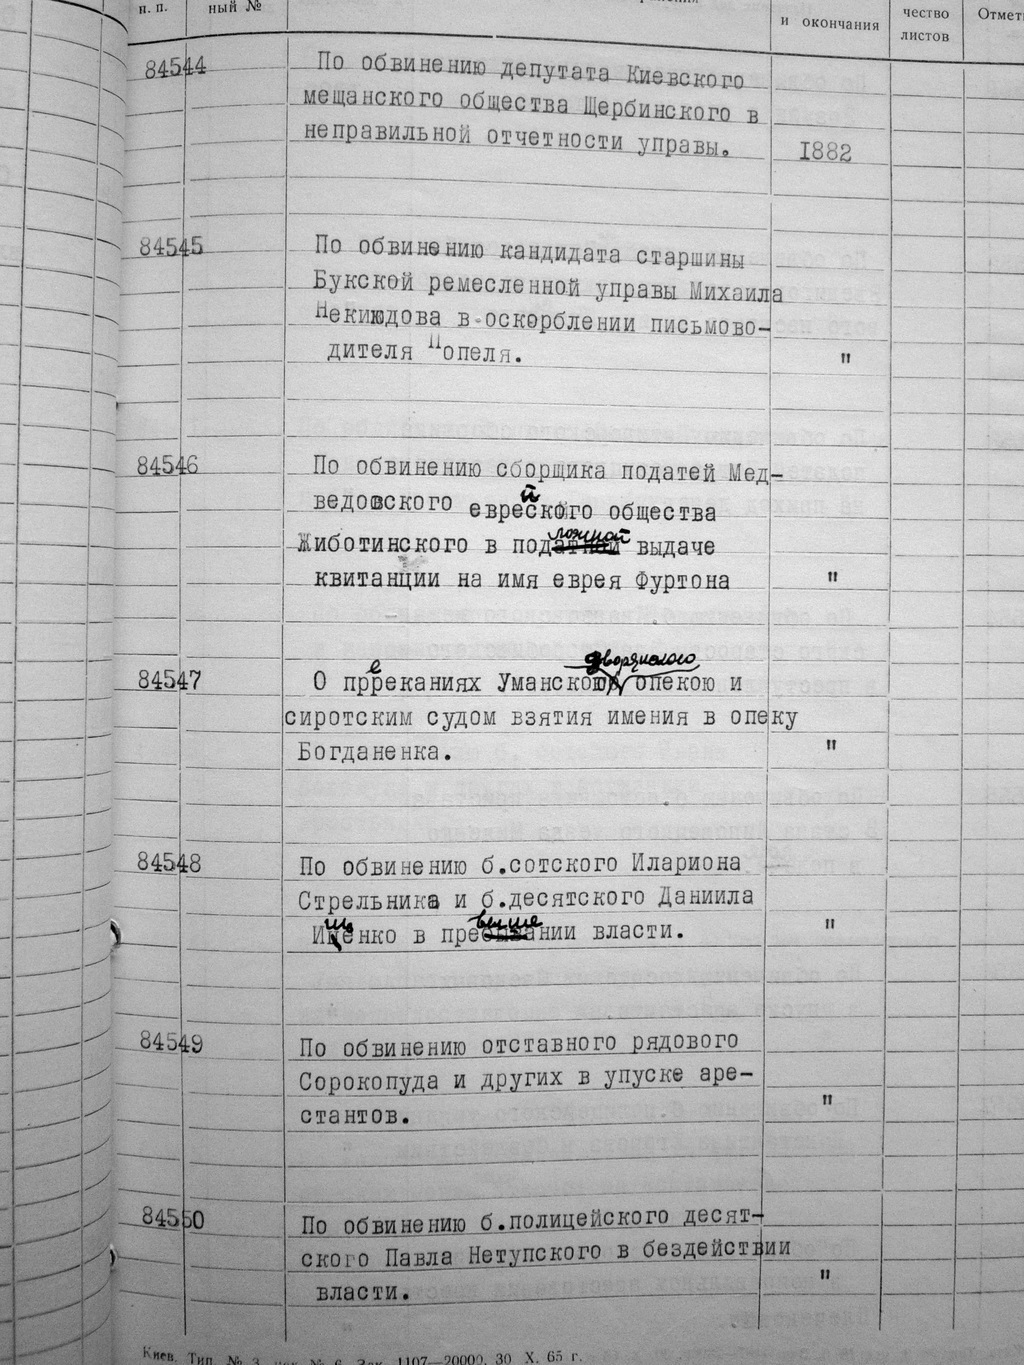 н. п.
ный №
и окончания
чество
листов
84544
По обвинению депутата Киевского
мещанского общества Щербинского в
неправильной отчетности управы.
1882
84545
По обвинению кандидата старшины
Букской ремесленной управы Михаила
Неклюдова в оскорблении письмово-
дителя Попеля.
"
84546
По обвинению сборщика податей Мед-
ведовского еврейского общества
Животинского в подложной выдаче
квитанции на имя еврея Фуртона
"
84547
О пререканиях Уманской дворянского опекою и
сиротским судом взятия имения в опеку
Богданенка.
"
84548
По обвинению б.сотского Илариона
Стрельника и б.десятского Даниила
Ищенко в превышении власти.
"
84549
По обвинению отставного рядового
Сорокопуда и других в упуске аре-
стантов.
"
84550
По обвинению б.полицейского десят-
ского Павла Нетупского в бездействии
власти.
"
Киев. Тип. № 3, Зак. 1107—20000. 30 X. 65 г.